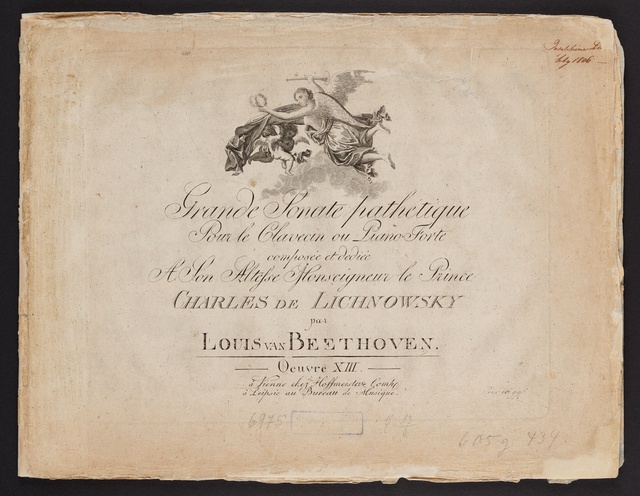 July 1806
Grande Sonate pathetique
Pour le Clavecin ou Piano-Forte
composée et dediée
A Son Altesse Monseigneur le Prince
CHARLES DE LICHNOWSKY
par
LOUIS VAN BEETHOVEN.
Oeuvre XIII.
à Vienne chez Hoffmeister Comp.
à Leipsic au Bureau de Musique.
6975